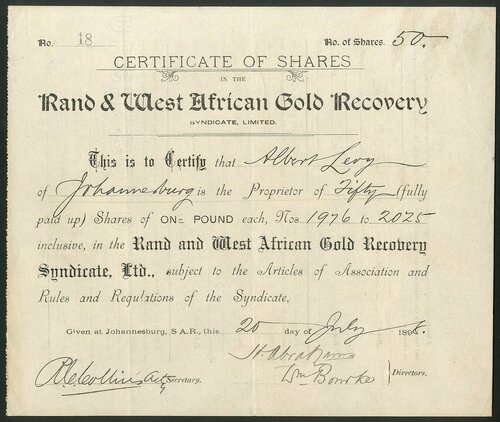 No. 18 No. of Shares. 50.
CERTIFICATE OF SHARES
IN THE
Rand & West African Gold Recovery
SYNDICATE, LIMITED.
This is to Certify that Albert Levy
of Johannesburg is the Proprietor of Fifty (fully
paid up) Shares of ONE POUND each, Nos 1976 to 2025
inclusive, in the Rand and West African Gold Recovery
Syndicate, Ltd., subject to the Articles of Association and
Rules and Regulations of the Syndicate.
Given at Johannesburg, S.A.R., this 20 day of July 1898.
H Abrahams
R C Collins Actg Secretary. Wm Bourke Directors.